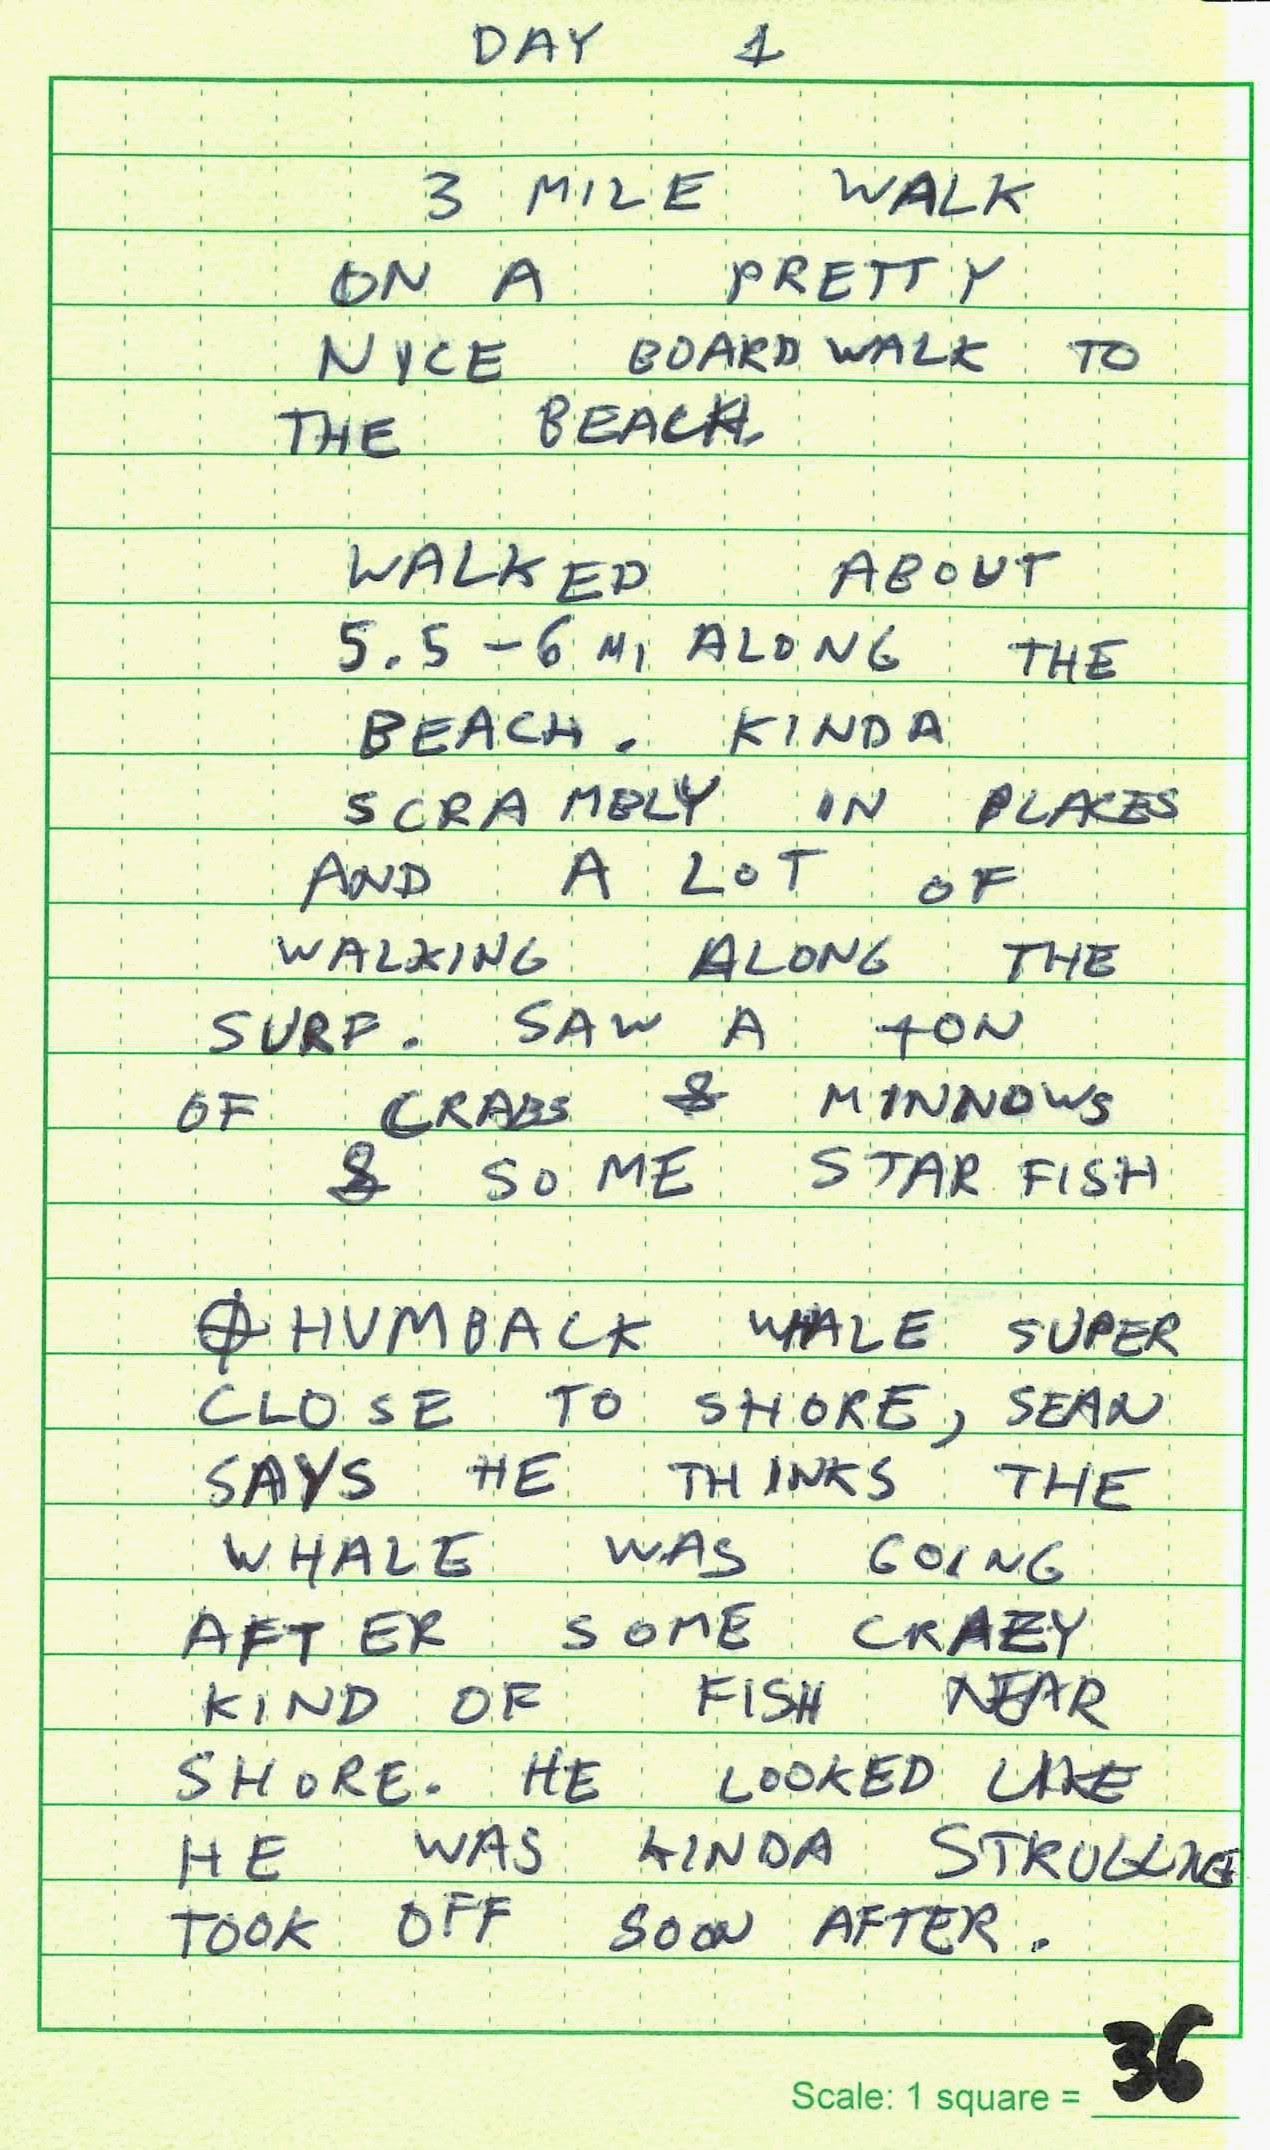 DAY 1
3 MILE WALK
ON A PRETTY
NICE BOARDWALK TO
THE BEACH.
WALKED ABOUT
5.5-6 MI ALONG THE
BEACH. KINDA
SCRAMBLY IN PLACES
AND A LOT OF
WALKING ALONG THE
SURF. SAW A TON
OF CRABS & MINNOWS
& SOME STARFISH
HUMBACK WHALE SUPER
CLOSE TO SHORE, SEAN
SAYS HE THINKS THE
WHALE WAS GOING
AFTER SOME CRAZY
KIND OF FISH NEAR
SHORE. HE LOOKED LIKE
HE WAS KINDA
TOOK OFF SOON AFTER.
36
Scale: 1 square =